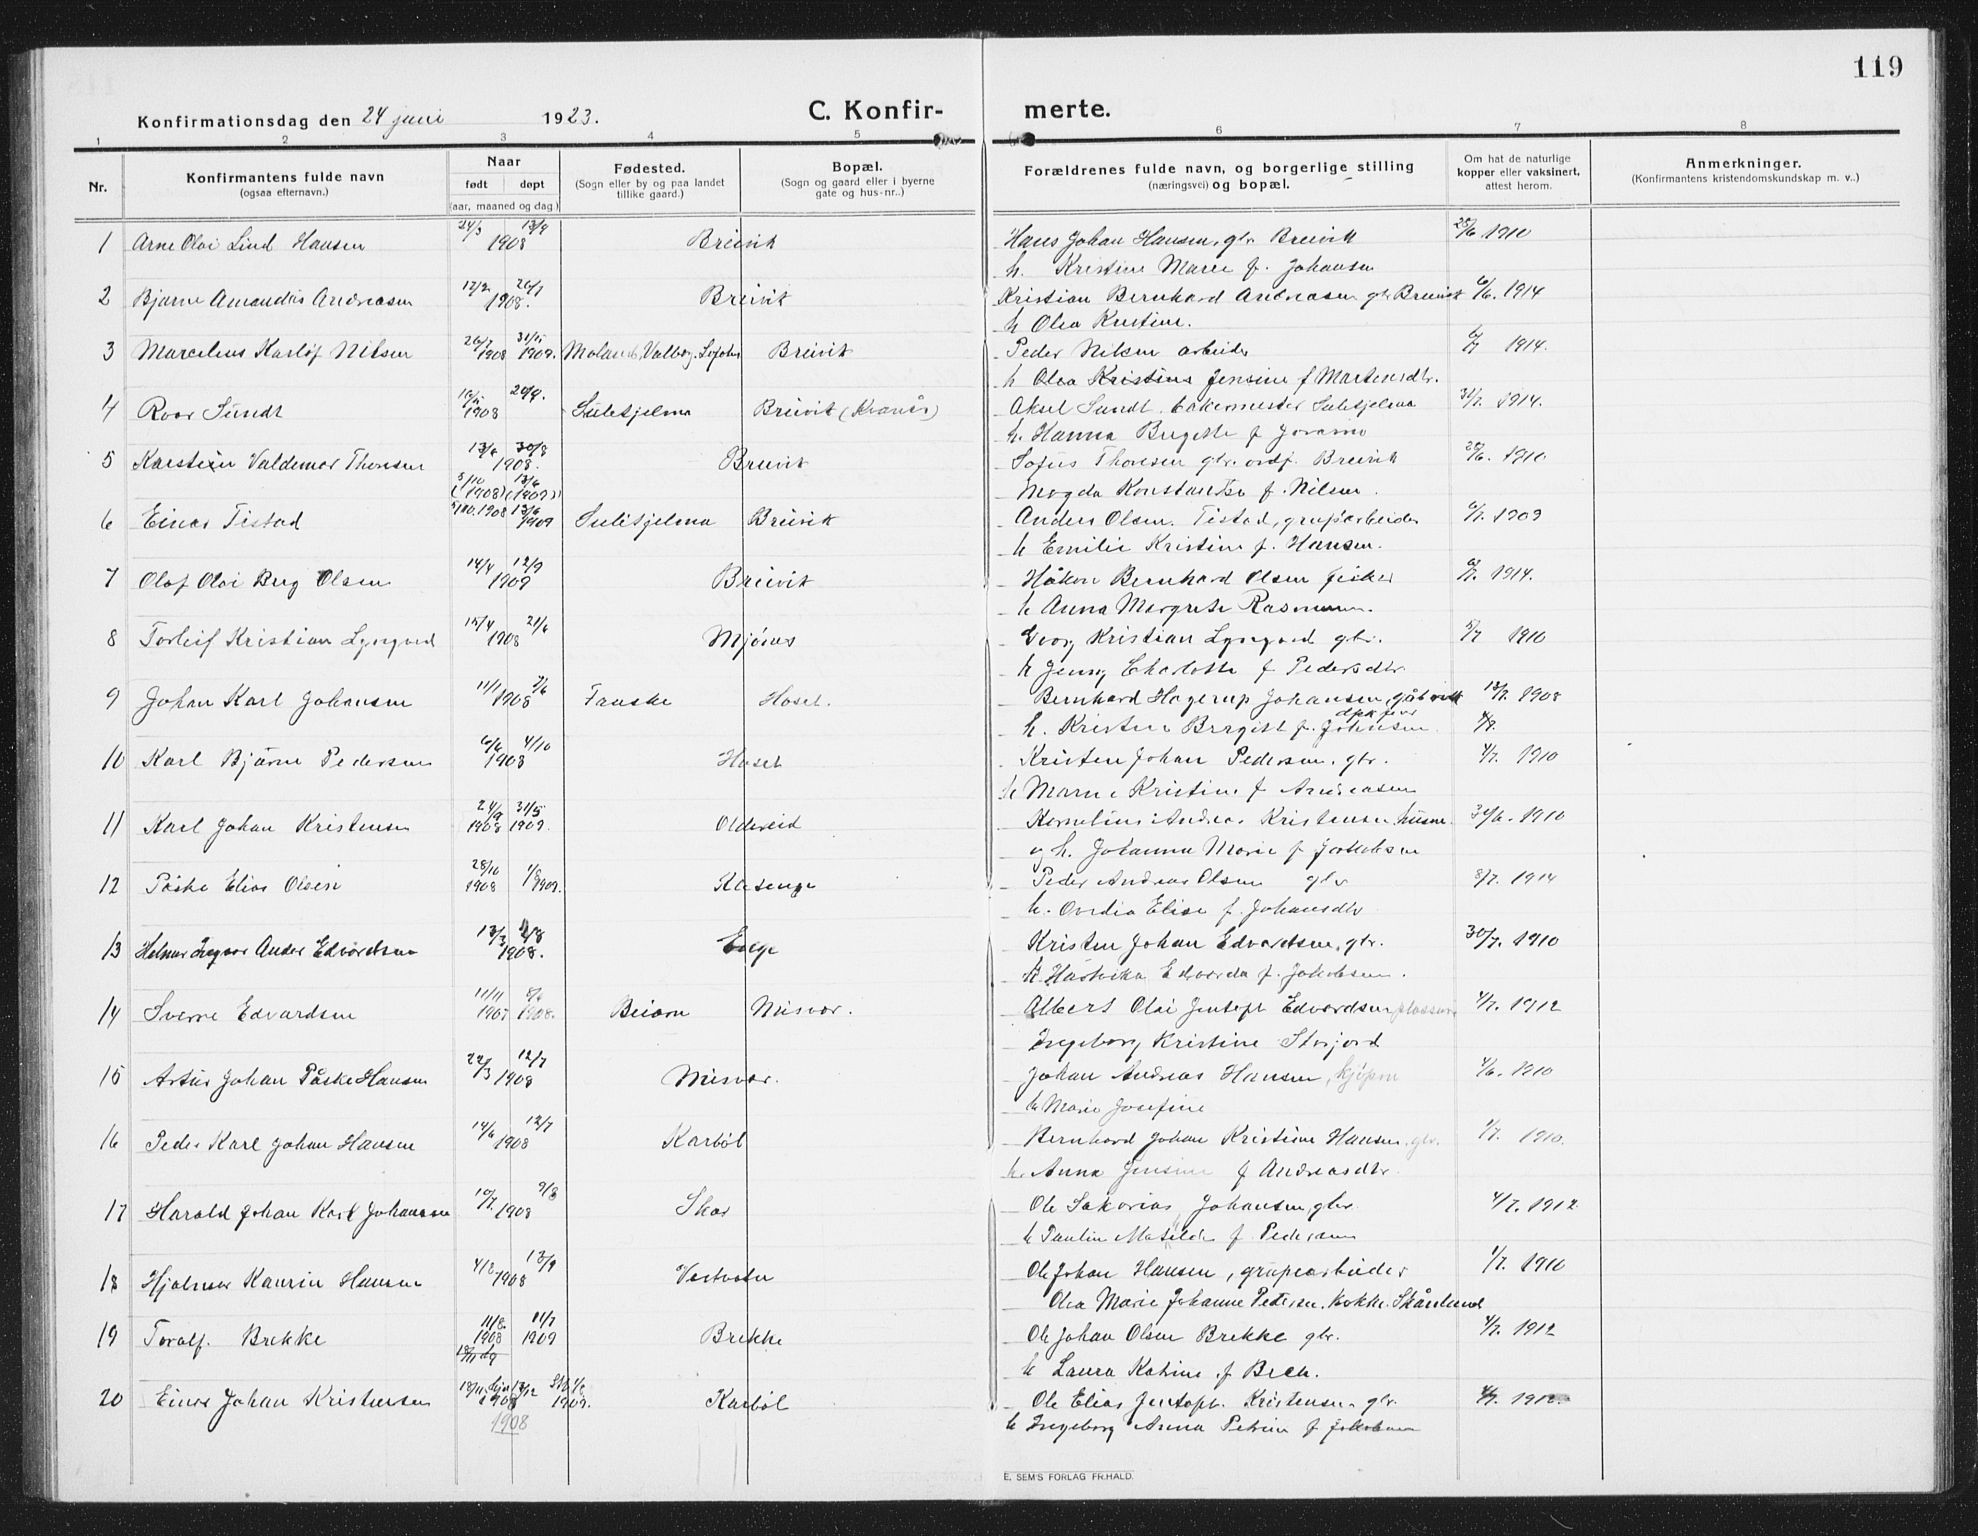 119
Konfirmationsdag den 24 juni 1923. C. Konfir-merte.
1 2 3 4 5 6 7 8
Nr. Konfirmantens fulde navn (ogsaa efternavn.) Naar født døpt (aar, maaned og dag.) Fødested. (Sogn eller by og paa landet tillike gaard.) Bopæl. (Sogn og gaard eller i byerne gate og hus-nr..) Forældrenes fulde navn, og borgerlige stilling (næringsvei) og bopæl. Om hat de naturlige kopper eller vaksinert, attest herom. Anmerkninger. (Konfirmantens kristendomskundskap m. v..)
1 Arne Olai Lind Hansen 24/3 13/9 1908 Breivik Hans Johan Hansen, gbr. Breivik 25/6 1910
h. Kristine Marie f. Johansen
2 Bjarne Amandus Andreasen 1908. Breivik Kristian Bernhard Andreasen gbr Breivik 6/6. 1914
h Olea Kristine.
3 Marcelius Karlof Nilsen 26/7 1908 31/5 1909. Breivik Peder Nilsen arbeider 1914.
h Olea Kristine Jensine f Martensdtr.
4 Roar Sundt 1908 Sulitjelma Breivik Aksel Sundt. bakermester Sulitjelma 31/7. 1914.
h. Hanna Birgitte f
5 Karstein Valdemar Thoresen 13/6 30/8 1908. Breivik Sofus Thoresen gbr. ordf. Breivik 1910
Magda Konstanse f. Nilsen.
5/10 (1908) 13/6 (1909)
6 Einar Tistad 5/10.1908 13/6 1909 Sulitjelma Breivik Anders Olsen Tistad, grubearbeider 1909
h Emilie Kristine f. Hansen.
7 Olaf Olai Berg Olsen 14/4 12/9 1909 Breivik Håkon Bernhard Olsen fisker 1914.
h Anna Margrete Rasmussen.
8 Torleif Kristian Lyngved 15/4 21/6 1908 Mjønes Georg Kristian Lyngved gbr. 1910
h Jenny Charlotte f Pedersdtr
9 Johan Karl Johansen 11/1 7/6 1908 Fauske Hoset. Bernhard Hagerup Johansen, 13/7. 1908
h. Kristine Bergitt f. Johnsen
10 Karl Bjarne Pedersen 6/6 4/10 1908 Hoset Kristen Johan Pedersen. gbr. 4/7. 1910
h Marie Kristine f Andreasen
11 Karl Johan Kristensen 24/9 1908 31/5 1909. Oldereid Kornelius Andreas Kristensen husm. 30/6. 1910
og h. Johanna Marie f Jakobsen
12 Påske Elias Olsen 28/10 1908 1909. Peder Andreas Olsen gbr 8/7. 1914
h. Ovedia Elise f. Johansdtr
13 Helmer Ingvar Ander Edvardsen 13/3 2/8 1908. Kristen Johan Edvardsen, gbr. 30/7. 1910
h. Hartvika Edvarda f. Jakobsen.
14 Sverre Edvardsen 11/11 1907 8/6 1908. Beiarn Misvær. Albert Olai Jentoft Edvardsen 4/7. 1912
Ingeborg Kristine Storjord
15 Artur Johan Påske Hansen 22/3 12/7 1908 Misvær. Johan Andreas Hansen, kjøpm 4/6. 1910
h Marie Josefine
16 Peder Karl Johan Hansen 14/6 12/7 1908 Karbøl Bernhard Johan Kristian Hansen, gbr. 1/7. 1910.
h. Anna Jensine f Andreasdtr.
17 Harald Johan Karl Johansen 10/7. 9/8 1908 Skar Ole Sakarias Johansen, gbr. 4/7. 1912
h Paulin Matilde f. Pedersen
18 Hjalmar Kaurin Hansen 4/8 13/9 1908 Vestvatn Ole Johan Hansen, grubearbeider 1/7. 1910
Olea Marie Johanne Pedersen. kokke. Skånland
19 Toralf. Brekke 11/8. 1908 11/7 1909 Brekke Ole Johan Olsen Brekke gbr. 4/7. 1912
h Laura Katrine f Bech.
20 Einar Johan Kristensen 1908 1909. Karbøl Ole Elias Jentoft. Kristensen gbr. 4/7. 1912
1908 h Ingeborg Anna Petrine f Jakobsen
E. SEM'S FORLAG FR.HALD.